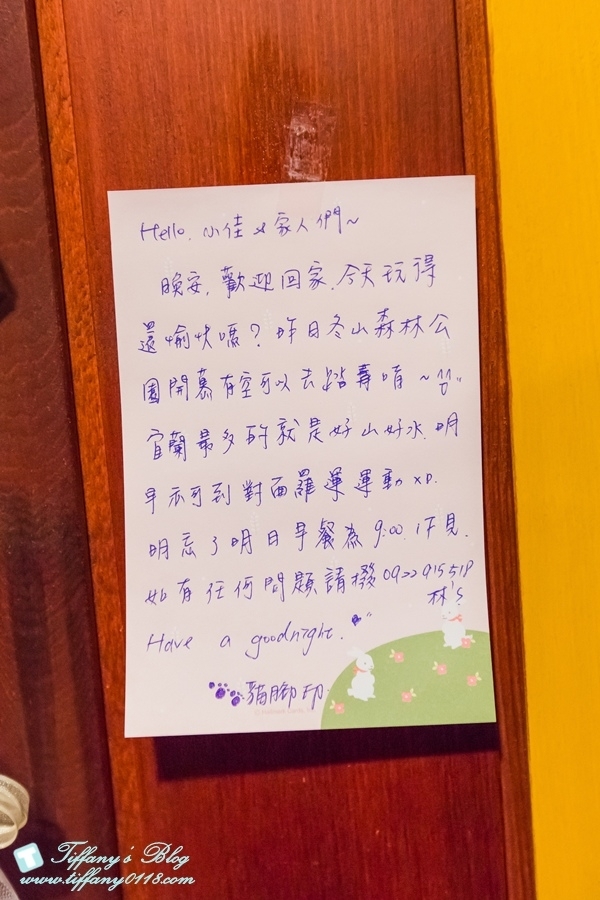 Hello. 小佳 & 家人們~
晚安, 歡迎回家, 今天玩得
還愉快嗎? 昨日冬山森林公
園開幕有空可以去踏尋唷~
宜蘭最多的就是好山好水, 明
早亦可到對面羅運運動 XD.
明忘了明日早餐為 9:00. 1F見.
如有任何問題請撥 0922915518
林's
Have a goodnight.
貓腳印
Tiffany's Blog
www.tiffany0118.com